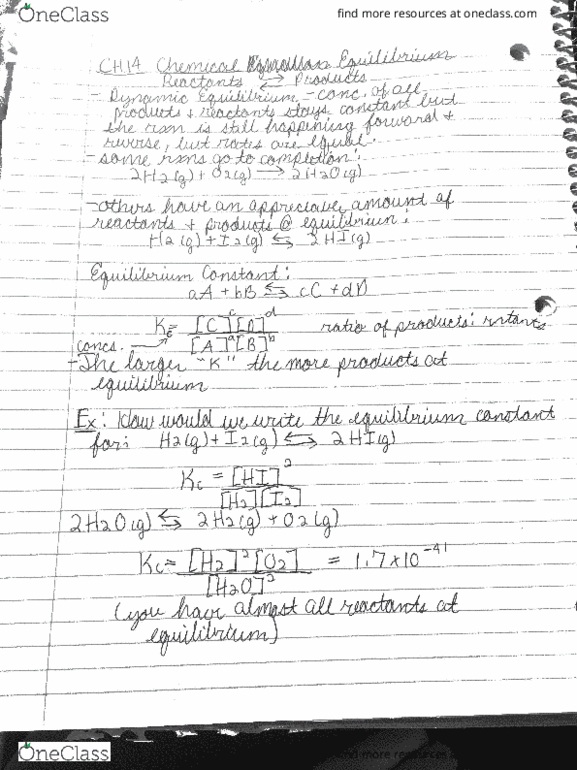 OneClass
find more resources at oneclass.com
CH.14 Chemical Equilibrium
Reactants ⇆ Products
- Dynamic Equilibrium - conc. of all
products + reactants stays constant but
the rxn is still happening forward +
reverse, but rates are equal.
- some rxns go to completion:
2H2(g) + O2(g) → 2H2O(g)
- others have an appreciave amount of
reactants + products @ equilibrium:
H2(g) + I2(g) ⇆ 2HI(g)
Equilibrium Constant:
aA + bB ⇆ cC + dD
Kc = [C]^c[D]^d / [A]^a[B]^b ratio of products:
concs. →
- The larger "K" the more products at
equilibrium
Ex: How would we write the equilibrium constant
for: H2(g) + I2(g) ⇆ 2HI(g)
Kc = [HI]^2 / [H2][I2]
2H2O(g) ⇆ 2H2(g) + O2(g)
Kc = [H2]^2[O2] / [H2O]^2 = 1.7x10^-41
(you have almost all reactants at
equilibrium)
OneClass
find more resources at oneclass.com